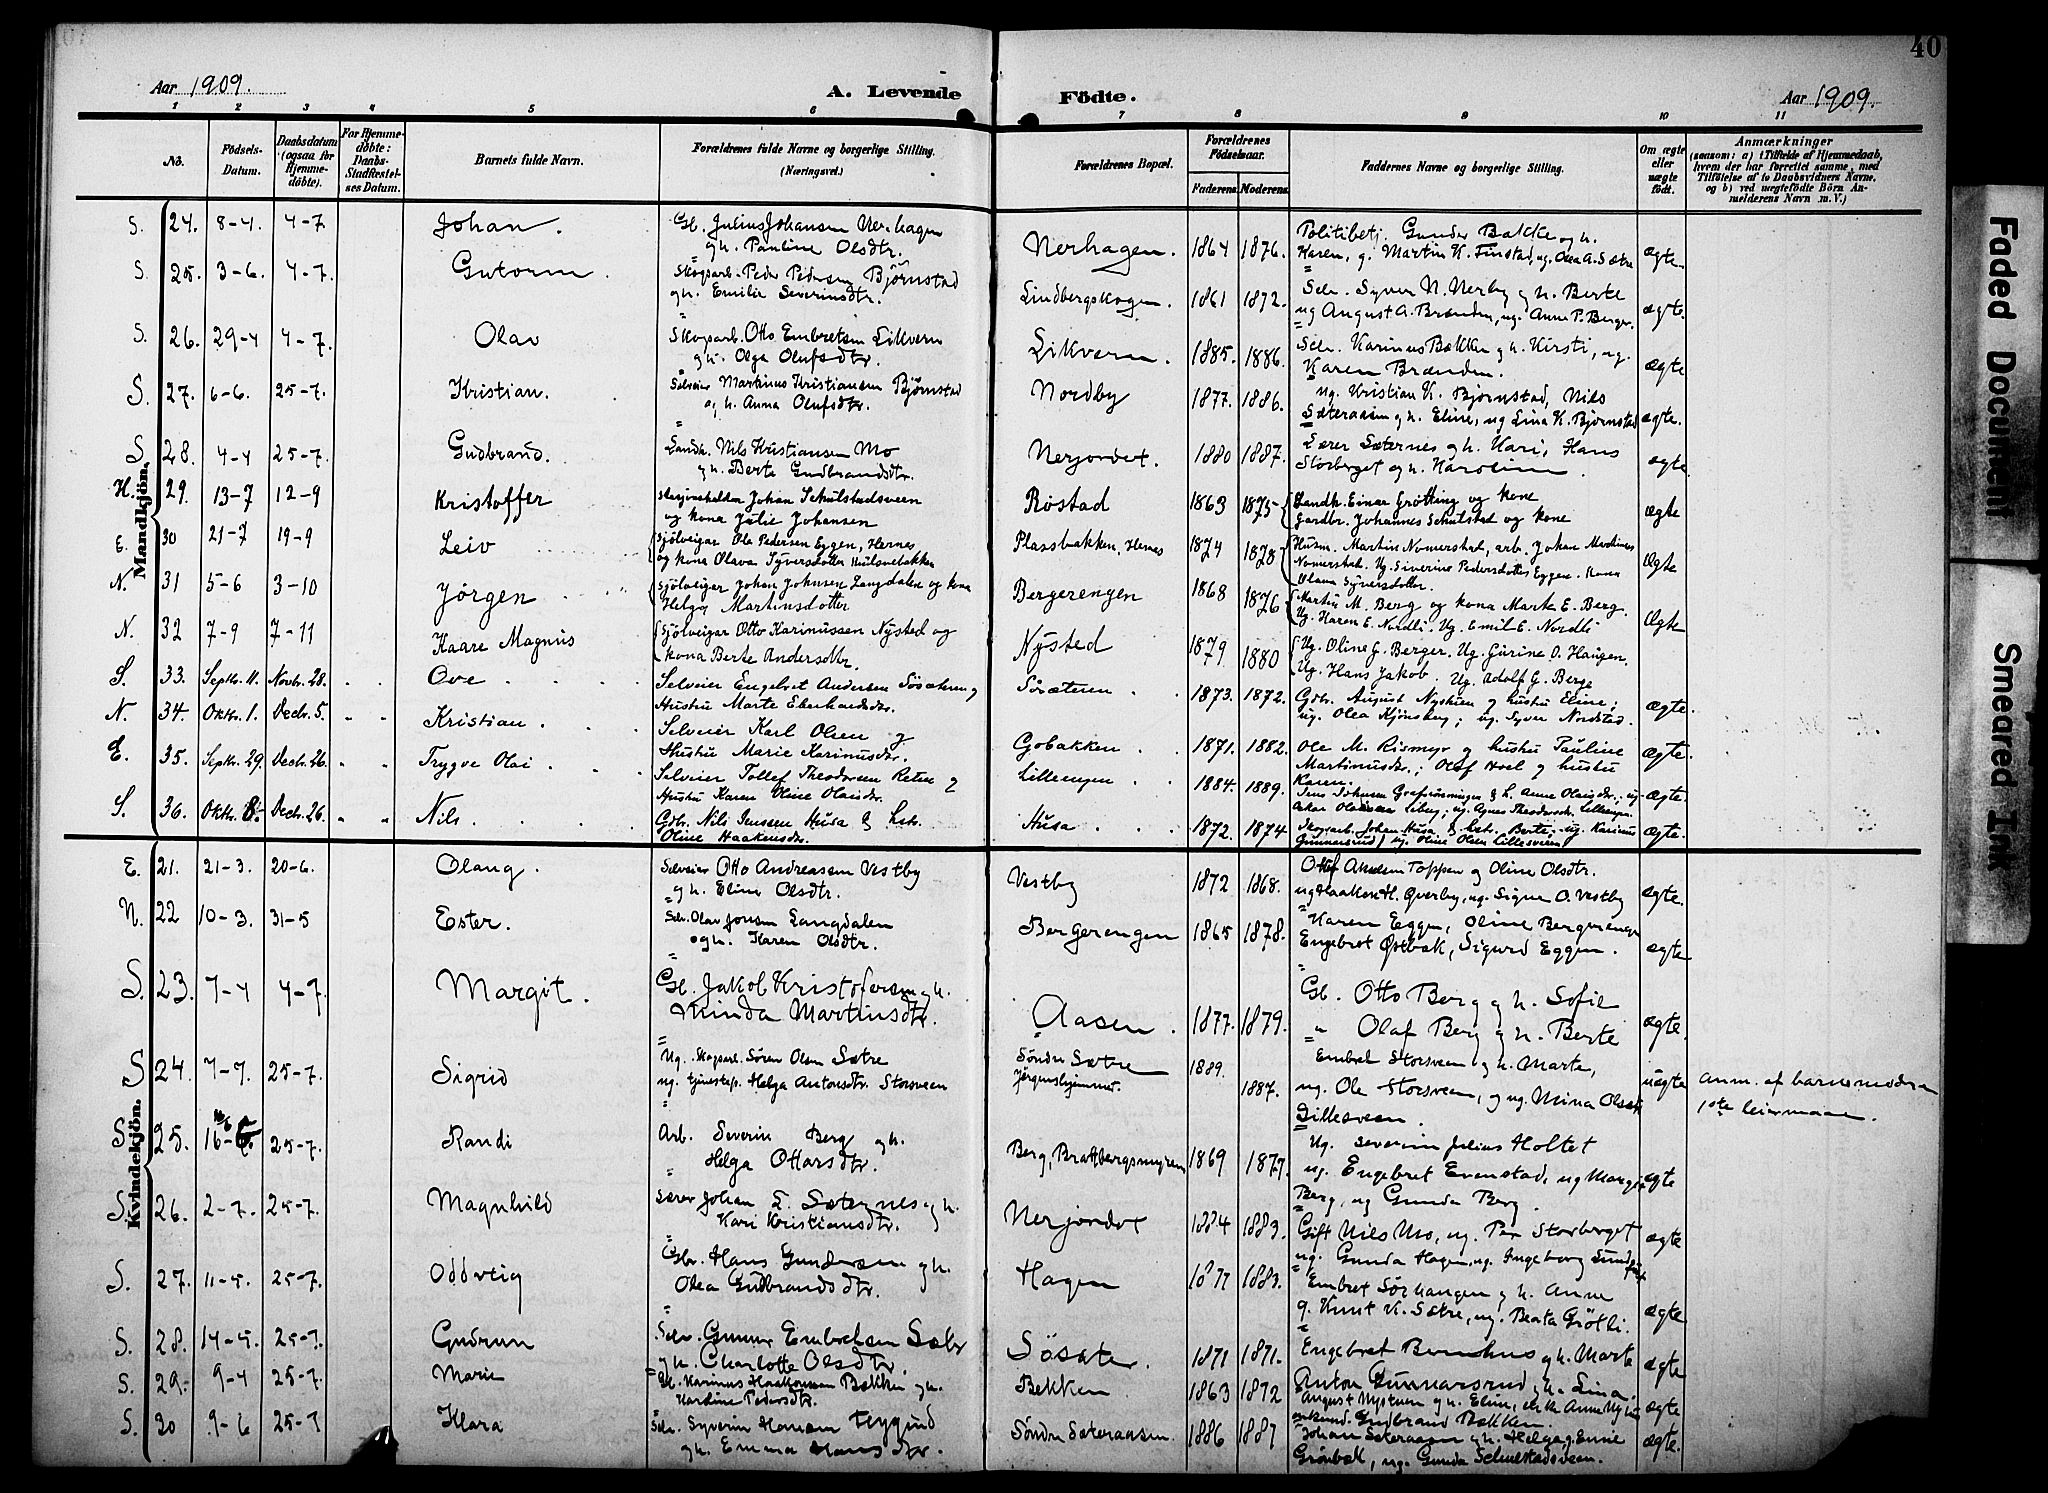 40
Aar 1909.
A. Levende Födte.
Aar 1909.
1 2 3 4 5 6 7 8 9 10 11
No.
Födsels-Datum.
Daabsdatum (ogsaa for Hjemmedöbte).
For Hjemmedöbte: Daabs-Stadfæstelses Datum.
Barnets fulde Navn.
Forældrenes fulde Navne og borgerlige Stilling. (Næringsvei.)
Forældrenes Bopæl.
Forældrenes Födselsaar.
Faderens. Moderens.
Faddernes Navne og borgerlige Stilling.
Om ægte eller uægte födt.
Anmærkninger
(saasom: a) i Tilfælde af Hjemmedaab, hvem der har forrettet samme, med Tilföielse af to Daabsvidners Navne, og b) ved uægtefödte Börn Anmelderens Navn m. V.)
Mandkjön.
S. 24. 8-4. 4-7 Johan. Gbr. Julius Johansen Nerhagen og h. Pauline Olsdtr. Nerhagen. 1864 1876. Politibetj. Gunder Bakke og h. Karen, g. Martin K. Finstad, ug. Olea A. Sætre ægte.
S. 25. 3-6. 4-7. Gutorm. Skogsarb. Peder Pedersen Bjørnstad og h. Emilie Severinsdtr. Lindbergskogen. 1861 1872. Selv. Syver N. Nerby og h. Berte ug August A. Brænden, ug. Anne P. Berger. ægte.
S. 26. 29-4 4-7. Olav Skogsarb. Otto Embretsen Likvern og h. Olga Olufsdtr. Likvern. 1885. 1886. Selv. Karinus Bakken og h. Kirsti, ug. Karen Brænden. ægte
S. 27. 6-6. 25-7. Kristian. Selveier Martinus Kristiansen Bjørnstad og h. Anna Olufsdtr. Nordby 1877. 1886. ug. Kristian K. Bjørnstad, Nils Sæteraasen og h. Eline, ug Lina K. Bjørnstad ægte.
S 28. 4-4 25-7. Gudbrand. Landh. Nils Kristiansen Mo og h. Berte Gudbrandsdtr. Nerjordet. 1880 1887. Lærer Sæternes og h. Kari, Hans Storberget og h. Karoline ægte
H. 29. 13-7 12-9 Kristoffer Johan Schulstadsveen og kona Julie Johansen Røstad 1863 1875 Landh. Einar Grøtting og kone Gardbr. Johannes Schulstad og kone ægte
E. 30 21-7 19-9 Leiv Sjølveigar Ole Pedersen Eggen, Hernes og kona Olava Syversdotter Plassbakken, Hernes 1874 1878 Husm. Martin Nomerstad, arb. Johan Martines Nomerstad. Ug. Siverine Pedersdotter Eggen. Kona Olava Syversdotter. Ægte
N. 31 5-6 3-10 Jørgen Sjølveigar Johan Johnsen Langdalen og kona Helga Martinsdotter Bergerengen 1868 1876 Martin M. Berg og kona Marte E. Berg. Ug. Karen E. Nordli. Ug. Emil E. Nordli Ægte
N. 32 7-9 7-11 Kaare Magnus Sjølveigar Otto Karinussen Nysted og kona Berte Andersdtr. Nysted 1879 1880 Ug. Oline G. Berger. Ug. Gurine O. Haugen. Ug. Hans Jakob. Ug. Adolf G. Berge
S. 33. Septbr. 11. Novbr. 28. Ove Selveier Engebret Andersen Søsæteren og Hustru Marte Eberhardsdr. Søsæteren 1873. 1872. Gdbr. August Nystuen og hustru Eline; ug. Olea Kjønsberg; ug. Syver Nordstad. ægte.
N. 34. Oktbr. 1. Decbr. 5. Kristian Selveier Karl Olsen og Hustru Marie Karinusdr. Gobakken 1871. 1882. Ole M. Rismyr og hustru Pauline Martinusdr.; Olaf Hoel og hustru Karen. ægte.
E. 35. Septbr. 29. Decbr. 26. Trygve Olai Selveier Tollef Theodorsen Reten og Hustru Karen Oline Olausdr. Lilleengen 1884. 1889. ægte.
S. 36. Oktbr. 8. Decbr. 26. Nils Gdbr. Nils Jenssen Husa & hstr. Oline Haakensdr. Husa 1872. 1874 Skogsarb. Johan Husa & hstr. Berte, ug. Karinus Gunnarsrud, ug. Oline Olsen Lillesveen ægte.
Kvindekjön.
E. 21. 21-3. 20-6. Olaug. Selveier Otto Andreassen Vestby og h. Eline Olsdtr. Vestby 1872 1868. Toppen og Oline Olsdtr. ug Haaken H. Øverby, ug. Signe O. Vestby ægte.
N. 22 10-3. 31-5 Ester. Selv. Olav Jonsen Langdalen og h. Karen Olsdtr. Bergerengen 1865 1878. Karen Eggen, Oline Bergerengen Engebret Østbæk, Sigurd Eggen. ægte
S. 23. 7-4 4-7. Margit. Gbr. Jakob Kristofersen og h. Minda Martinsdtr. Aasen. 1877. 1879. Gbr. Otto Berg og h. Sofie " Olaf Berg og h. Berte ægte
S 24. 7-7. 25-7. Sigrid Ug. Skogsarb. Søren Olsen Sætre ug. tjenestep. Helga Antonsdtr. Storsveen Søndre Sætre Jørgenshjemmet. 1889. 1887. Embret Storsveen og h. Marte, ug. Ole Storsveen, og ug. Mina Olsen Lillesveen. uægte Anm. af barnemoderen 1ste leiermaal.
S 25. 16- 25-7. Randi Arb. Severin Berg og h. Helga Ottarsdtr. Berg, Brattbergsmyren 1869 1877. Ug. Severin Julius Holtet ug. Engebret Evenstad, ug Margit Berg, ug Gunda Berg. ægte
S. 26. 2-7. 25-7. Magnhild Lærer Johan L. Sæternes og h. Kari Kristiansdtr. Nerjordet 1884 1883. Gift Nils Mo, ug. Per Storberget ug. Gunda Hagen, ug. Ingeborg ægte
S. 27. 11-5. 25-7. Oddveig Gbr. Hans Gundersen og h. Olea Gudbrandsdtr. Hagen 1877 1883. Embret Sørhaugen og h. Anne g. Knut K. Sætre, ug. Berta Grøtli. ægte
S. 28. 14-5. 25-7. Gudrun Selv. Gunnar Embretsen Sæbr og h. Charlotte Olsdtr. Søsæter. 1871 1871. Engebret Bernhus og h. Marte ægte
S. 29. 9-4 25-7. Marie Karinus Haakonsen Bækken og h. Karoline Pedersdtr. Bekken 1863 1872 Anton Gunnarsrud og h. Lina. August Nystuen og h. Eline, Gudbrand Bækken. ægte
S. 30 9-6 25-7 Klara Selv. Syverin Hansen Hygind og h. Emma Hansdtr. Søndre Sæteraasen 1886 1887 Johan Sæteraasen og h. Helga, g. Emil Grønbæk, ug. Gunda Schulstadsveen. ægte.
Faded Document
Smeared Ink